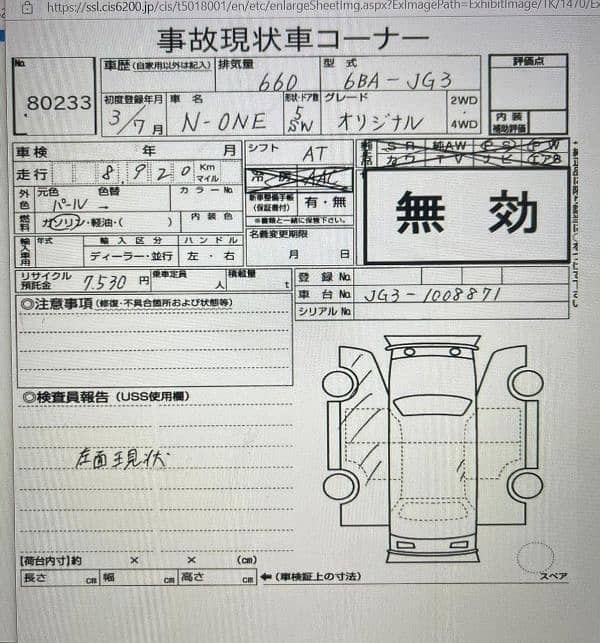 https://ssl.cis6200.jp/cis/t5018001/en/etc/enlargeSheetImg.aspx?ExImagePath=ExhibitImage/TK/1470/Ex
事故現状車コーナー
No. 80233
車歴(自家用以外は記入) 排気量 660 型式 6BA-JG3 評価点
初度登録年月 3/7月 車名 N-ONE 形状・ドア数 5 SW グレード オリジナル 2WD 4WD 内装補助評価
車検 年 月 シフト AT
走行 8,920 Km マイル 冷房 AAC
外色 元色 パール 色替 → カラーNo. 新車整備手帳(保証書付) 有・無 無効
燃料 ガソリン・軽油・( ) 内装色 ※書類と一緒に保管下さい。
輸入車用 年式 輸入区分 ディーラー・並行 ハンドル 左・右 名義変更期限 月 日
リサイクル預託金 7,530 円 乗車定員 人 積載量 t 登録No.
車台No. JG3-1008871
◎注意事項(修復・不具合箇所および状態等) シリアルNo.
◎検査員報告(USS使用欄)
左面現状
【荷台内寸】約 × × (cm)
長さ cm 幅 cm 高さ cm ←(車検証上の寸法) スペア